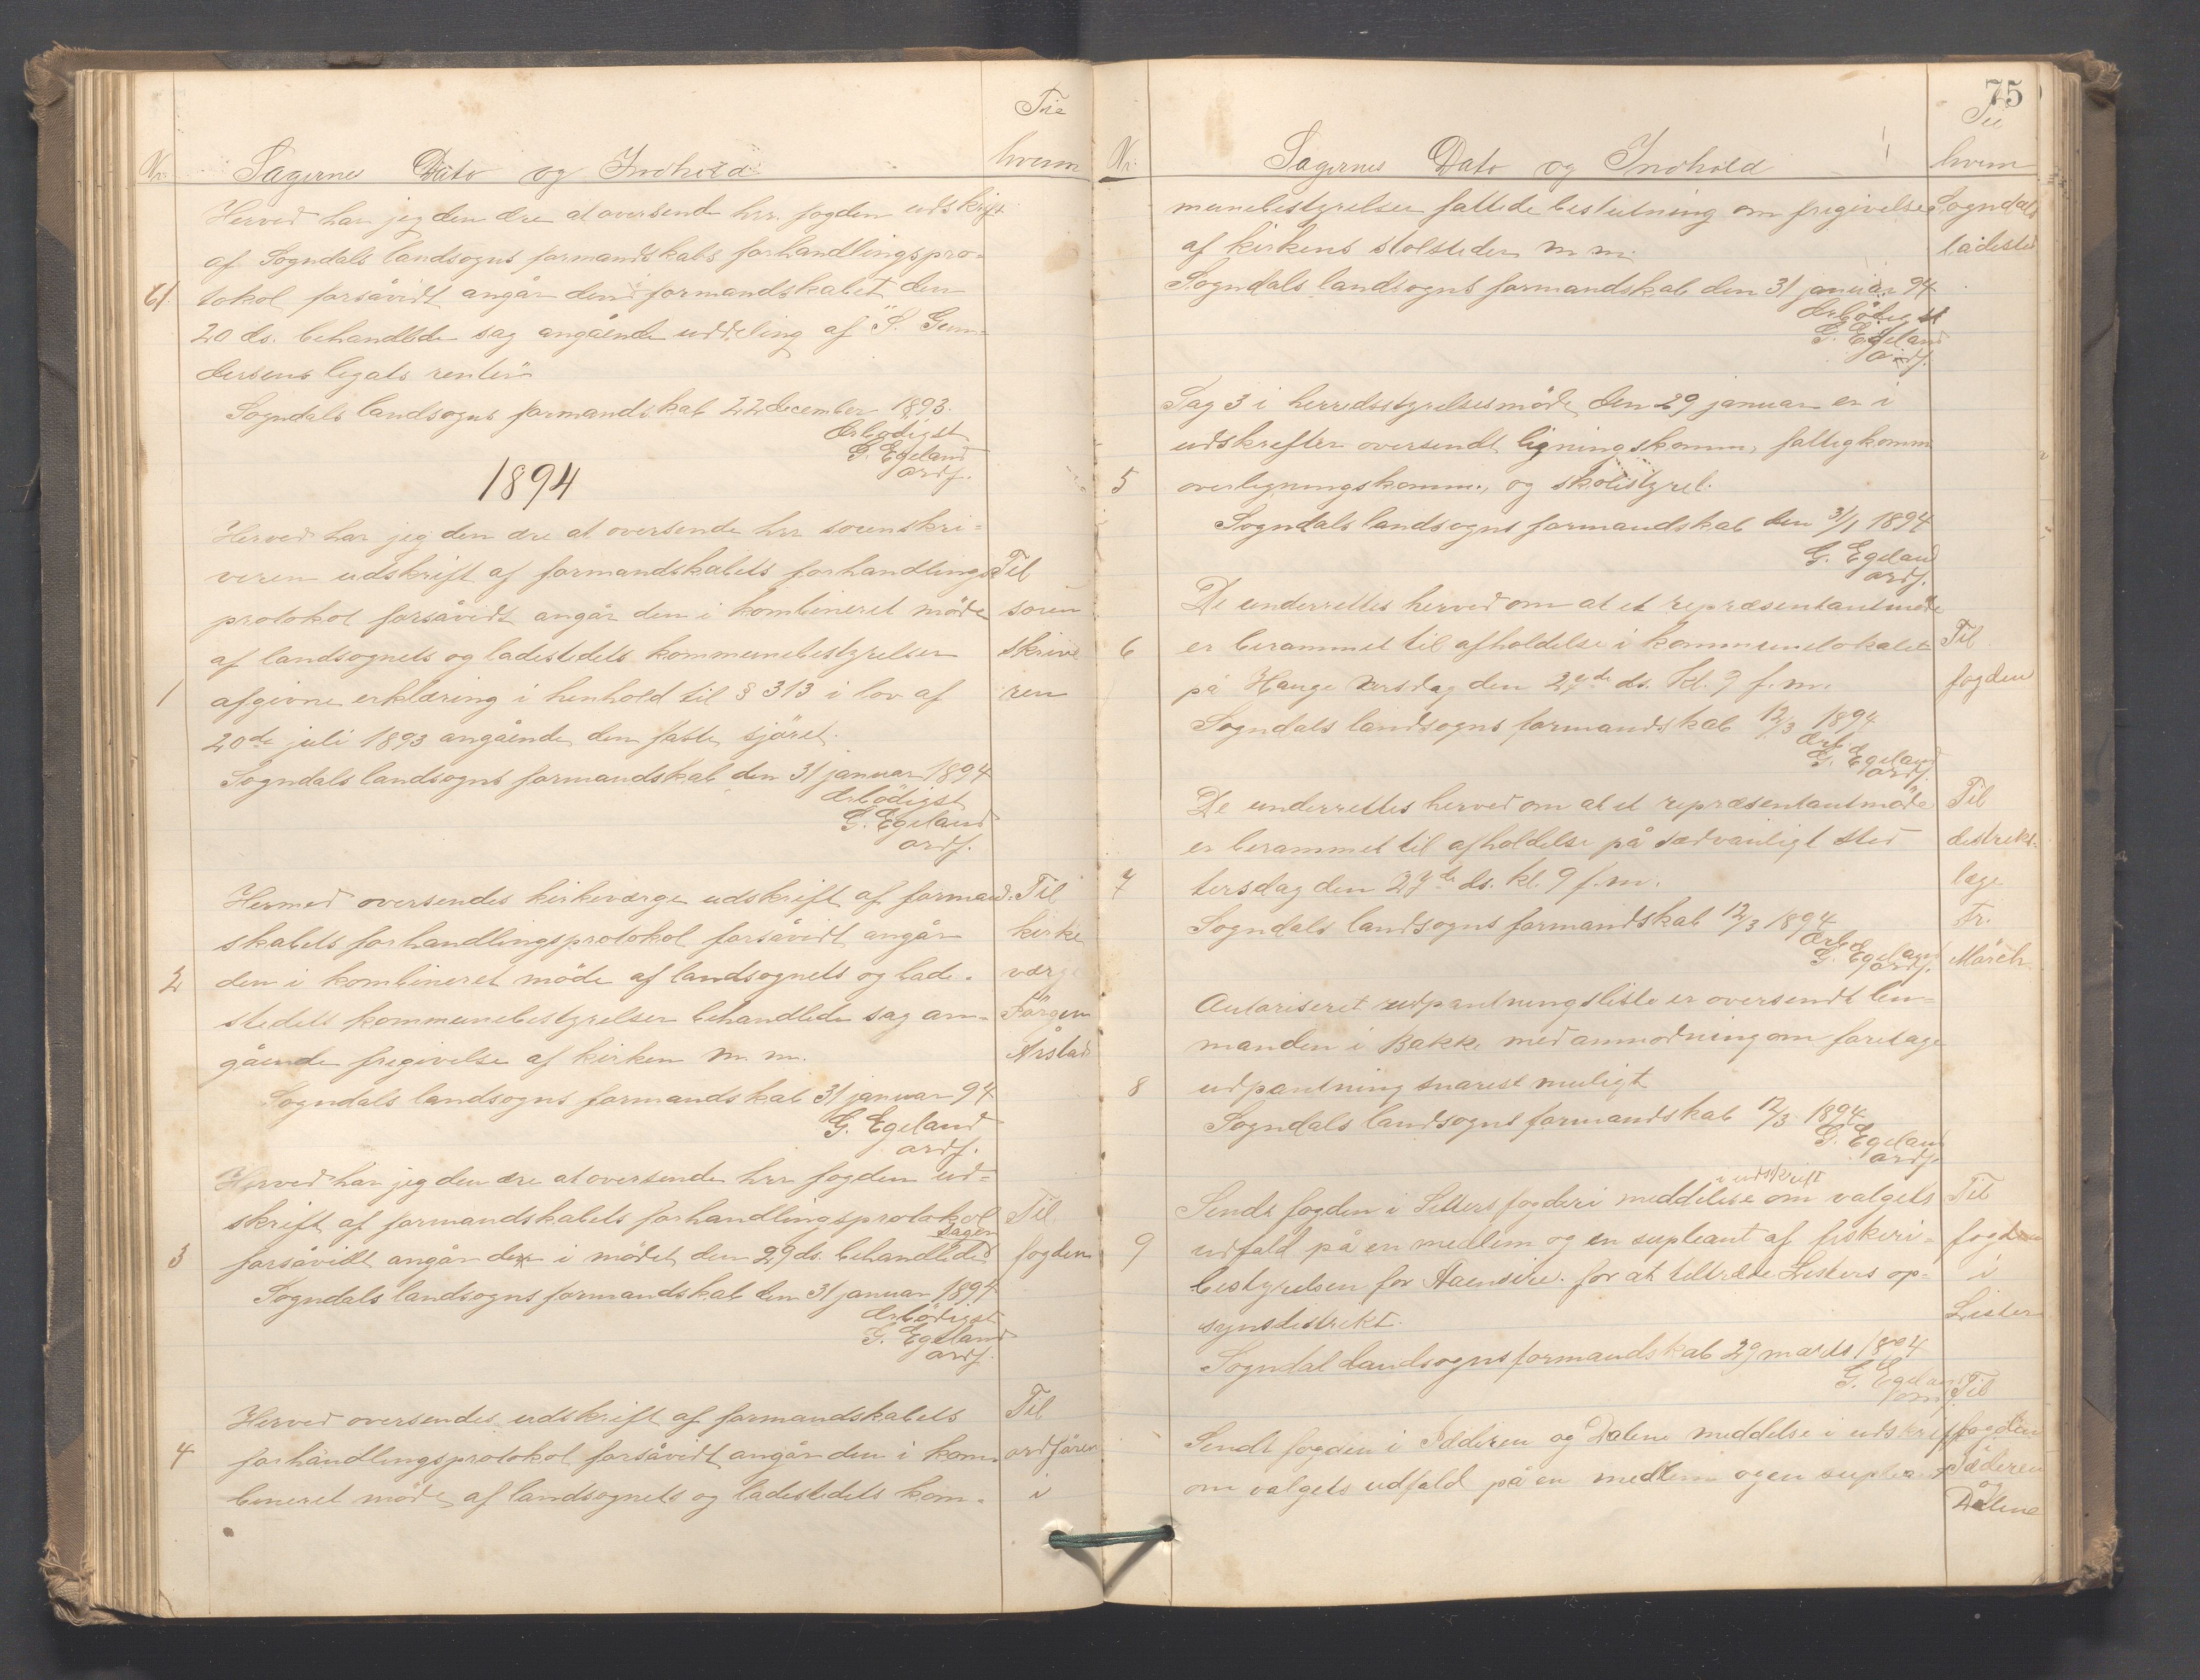 Til
Nr. Sagernes Dato og Indhold hvem
Herved har jeg den ære at oversende hrr. fogden udskrift
af Sogndals landsogns formandskabs forhandlingspro-
61. tokol forsåvidt angår den i formandskabet den
20 ds. behandlede sag angående uddeling af S. Gun-
dersens legats renter
Sogndals landsogns formandskab 22 december 1893.
Ærbödigst
G. Egeland
ordf.
1894
Herved har jeg den ære at oversende hrr sorenskri-
veren udskrift af formandskabets forhandlings- Til
protokol forsåvidt angår den i kombineret möde soren
af landsognets og ladestedets kommunebestyrelser skrive
1 afgivne erklæring i henhold til § 313 i lov af ren
20de juli 1893 angående den faste sjöret.
Sogndals landsogns formandskab den 31 januar 1894
Ærbödigst
G. Egeland
ordf.
Hermed oversendes kirkeværge udskrift af formand- Til
skabets forhandlingsprotokol forsåvidt angår kirke
2 den i kombineret möde af landsognets og lade- værge
stedets kommunebestyrelser behandlede sag an- Jörgen
gående frigivelse af kirken m. m. Årstad
Sogndals landsogns formandskab 31 januar 94
G. Egeland
ordf.
Herved har jeg den ære at oversende hrr fogden ud-
skrift af formandskabets forhandlingsprotokol Til
sagen
3 forsåvidt angår den i mödet den 29 ds. behandlede fogden
Sogndals landsogns formandskab den 31 januar 1894
Ærbödigst
G. Egeland
ordf.
Herved oversendes udskrift af formandskabets Til
4 forhandlingsprotokol forsåvidt angår den i kom- ordfören
bineret möde af landsognets og ladestedets kom- i
75
Til
Nr. Sagernes Dato og Indhold hvem
munebestyrelser fattede beslutning om frigivelse Sogndals
af kirkens stolsteder m. m. ladested
Sogndals landsogns formandskab den 31 januar 94
Ærbödigst
G. Egeland
ordf.
Sag 3 i herredsstyrelsesmöde den 29 januar er i
udskrifter oversendt ligningskomm, fattigkomm
5 overligningskomm., og skolestyret.
Sogndals landsogns formandskab den 31/1 1894
G. Egeland
ordf.
De underrettes herved om at et repræsentantmöde
6 er berammet til afholdelse i kommunelokalet Til
på Hauge tirsdag den 27de ds. kl. 9 f.m. fogden
Sogndals landsogns formandskab 12/3 1894
Ærb
G. Egeland
ordf.
De underrettes herved om at et repræsentantmöde Til
er berammet til afholdelse på sædvanligt sted distrikts-
7 tirsdag den 27de ds. kl. 9 f.m. læge
Sogndals landsogns formandskab 12/3 1894 Fr.
Ærb
G. Egeland März
ordf.
Autoriseret udpantningsliste er oversendt len-
manden i Bakke med anmodning om foretage
8 udpantning snarest muligt
Sogndals landsogns formandskab 12/3 1894
G. Egeland
ordf.
i udskrift
Sendt fogden i Listers fogderi meddelelse om valgets Til
9 udfald på en medlem og en supleant af fiskeri- fogden
bestyrelsen for Aaensire. for at tiltræde Listers op- i
synsdistrikt. Lister
Sogndal landsogns formandskab 29 marts 1894
G. Egeland
ordf. Til
Sendt fogden i Jæderen og Dalene meddelse i udskrift fogden
om valgets udfald på en medlem og en supleant Jæderen
og
Dalene